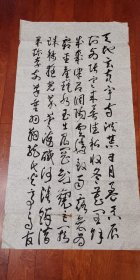 天地玄黄宇宙洪荒日月盈昃辰
宿列张寒来暑往秋收冬藏闰余
成岁律吕调阳云腾致雨露结为
霜金生丽水玉出昆冈剑号巨阙
珠称夜光
海咸河淡鳞潜
果珍李柰菜重芥姜羽翔龙师火帝鸟官